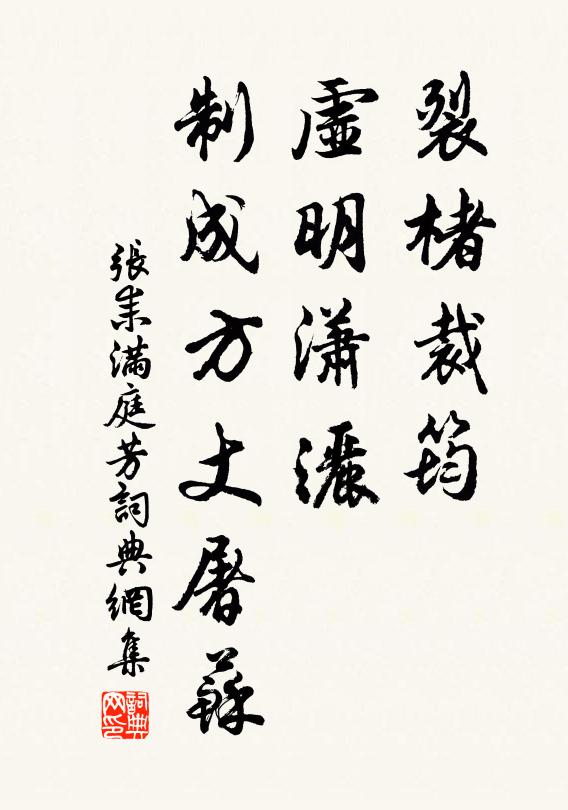 裂楮裁筠
虛明瀟灑
制成方丈屠蘇
張耒滿庭芳詞典網集
詞典網印